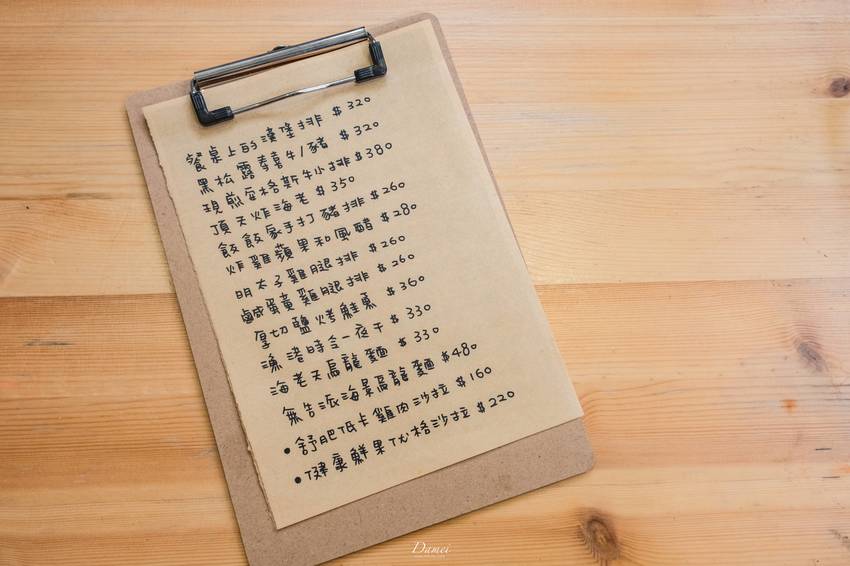 餐桌上的漢堡排 $320
黑松露壽喜牛/豬 $320
現煎安格斯牛小排 $380
頂天炸海老 $350
飯飯家手打豬排 $260
炸雞蘋果和風醋 $280
明太子雞腿排 $260
鹹蛋黃雞腿排 $260
厚切鹽烤鮭魚 $360
漁港時令一夜干 $330
海老天烏龍麵 $330
無告派海景烏龍麵 $480
•舒肥低卡雞肉沙拉 $160
•健康鮮果优格沙拉 $220
Damei